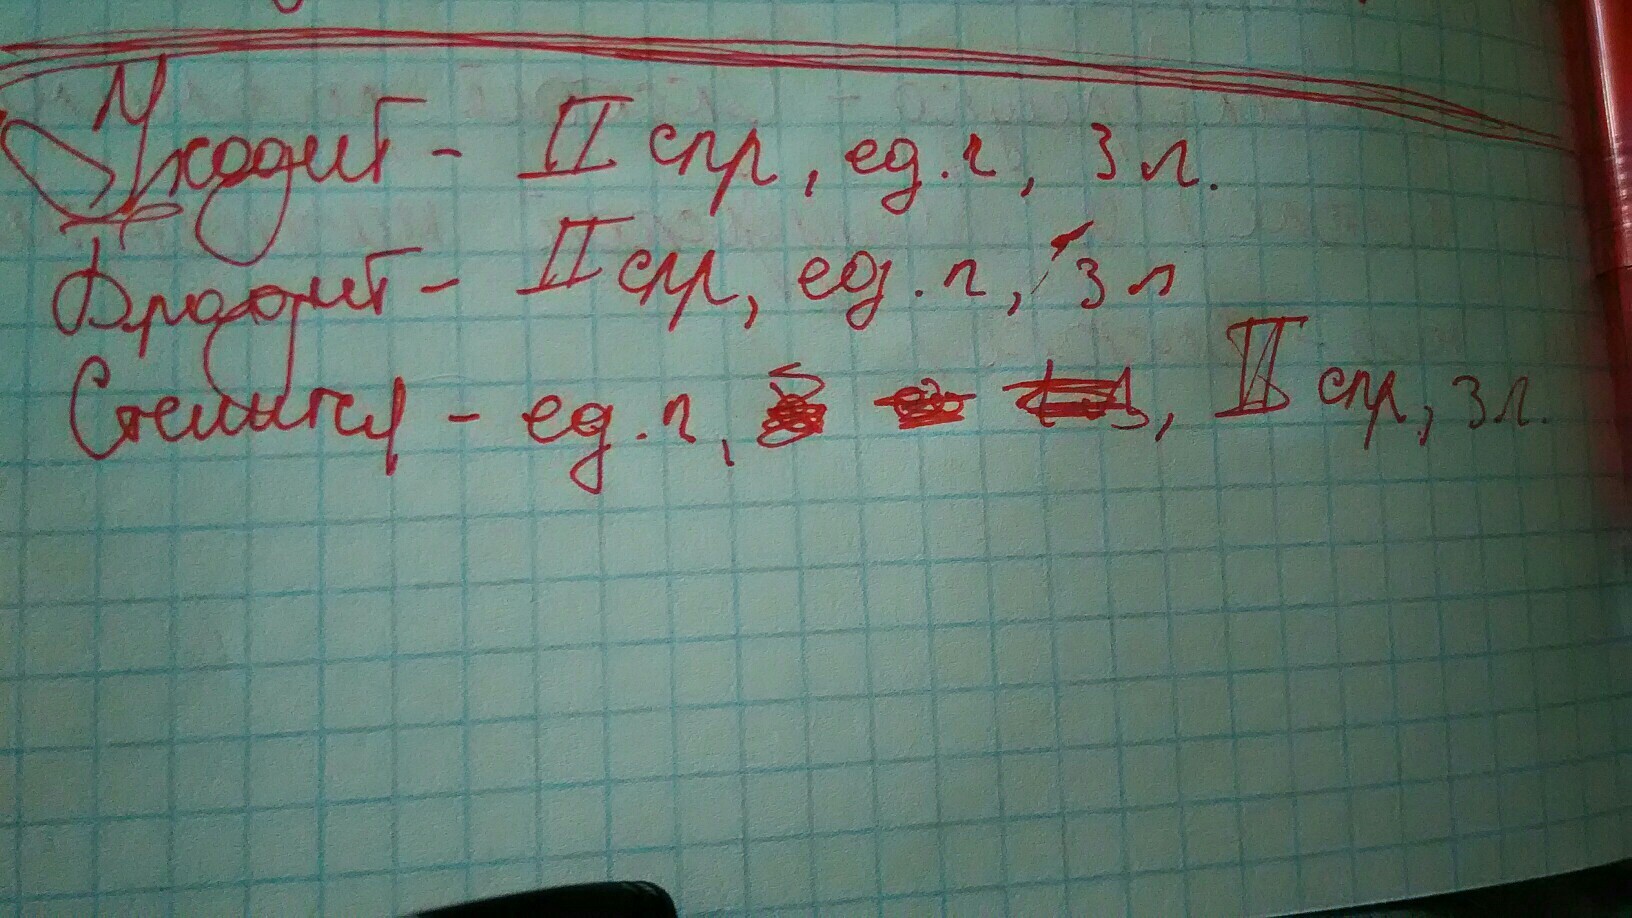 Уходит - II спр, ед. ч, 3 л.
Бродит - II спр, ед. ч, 3 л
Стелится - ед. ч, , II спр, 3 л.